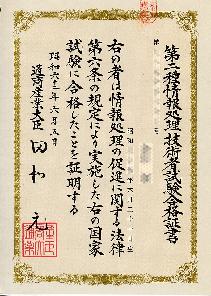 第二種情報処理技術者試験合格証書
第
昭和
右の者は情報処理の促進に関する法律
第六条の規定により実施した右の国家
試験に合格したことを証明する
昭和六三年
通商産業大臣 田村 元